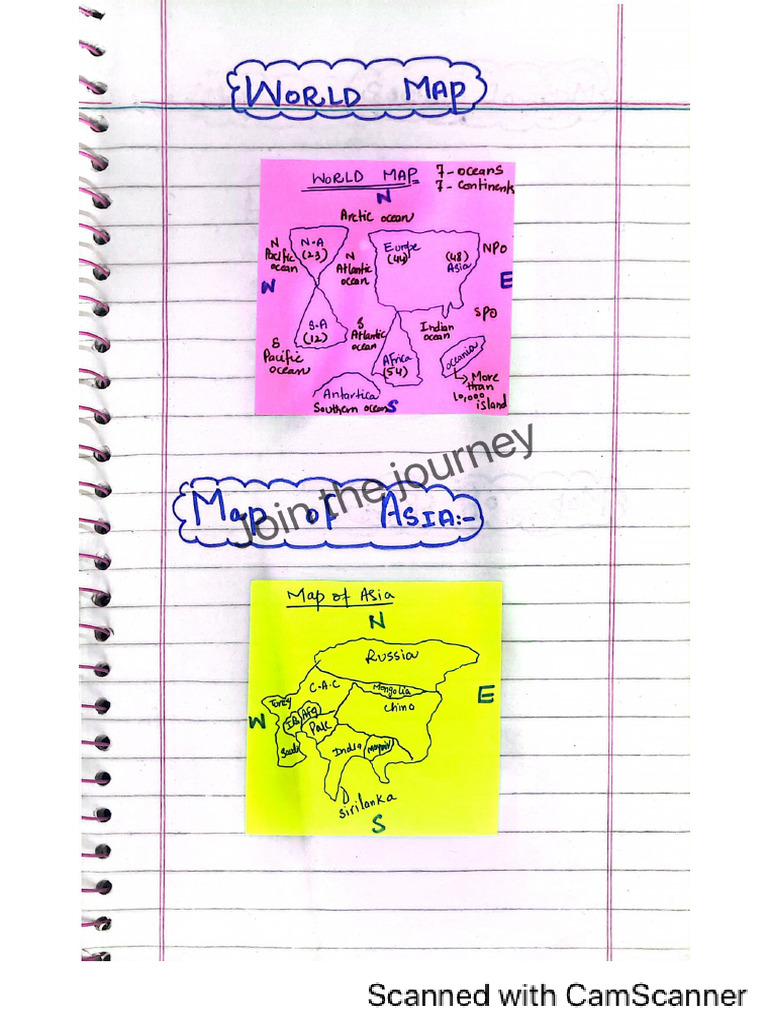 WORLD MAP
WORLD MAP
7-oceans
7-continents
N
Arctic ocean
N Pacific ocean
N-A (23)
N Atlantic ocean
Europe (44)
(48) Asia
NPO
W
E
S-A (12)
S Atlantic ocean
Indian ocean
SPO
S Pacific ocean
Africa (54)
Oceania
More than 10,000 island
Antartica
Southern ocean
S
Join the journey
MAP of ASIA:-
Map of Asia
N
Russia
C-A-C
Mongolia
China
E
W
Afg
Pak
Saudi
India
sirilanka
S
Scanned with CamScanner